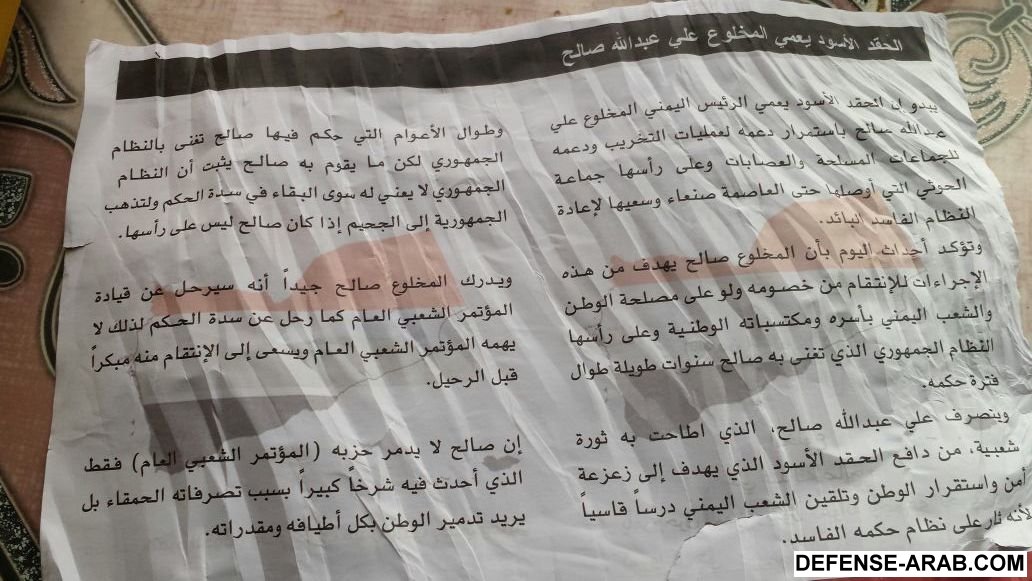 الحقد الأسود يعمي المخلوع علي عبدالله صالح
يبدو ان الحقد الأسود يعمي الرئيس اليمني المخلوع علي
عبدالله صالح باستمرار دعمه لعمليات التخريب ودعمه
للجماعات المسلحة والعصابات وعلى رأسها جماعة
الحوثي التي أوصلها حتى العاصمة صنعاء وسعيها لإعادة
النظام الفاسد البائد.
وتؤكد أحداث اليوم بأن المخلوع صالح يهدف من هذه
الإجراءات للإنتقام من خصومه ولو على مصلحة الوطن
والشعب اليمني بأسره ومكتسباته الوطنية وعلى رأسها
النظام الجمهوري الذي تغنى به صالح سنوات طويلة طوال
فترة حكمه.
وينصرف علي عبدالله صالح، الذي اطاحت به ثورة
شعبية، من دافع الحقد الأسود الذي يهدف إلى زعزعة
أمن واستقرار الوطن وتلقين الشعب اليمني درساً قاسياً
لأنه ثار على نظام حكمه الفاسد.
وطوال الأعوام التي حكم فيها صالح تغنى بالنظام
الجمهوري لكن ما يقوم به صالح يثبت أن النظام
الجمهوري لا يعني له سوى البقاء في سدة الحكم ولتذهب
الجمهورية إلى الجحيم إذا كان صالح ليس على رأسها.
ويدرك المخلوع صالح جيداً أنه سيرحل عن قيادة
المؤتمر الشعبي العام كما رحل عن سدة الحكم لذلك لا
يهمه المؤتمر الشعبي العام ويسعى إلى الإنتقام منه مبكراً
قبل الرحيل.
إن صالح لا يدمر حزبه (المؤتمر الشعبي العام) فقط
الذي أحدث فيه شرخاً كبيراً بسبب تصرفاته الحمقاء بل
يريد تدمير الوطن بكل أطيافه ومقدراته.
DEFENSE-ARAB.COM